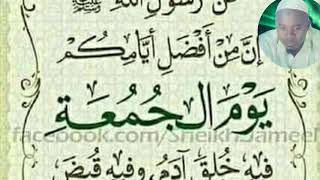 عن رسول الله ﷺ
إن من أفضل أيامكم
يوم الجمعة
facebook.com/SheikhJameel
فيه خلق آدم وفيه قبض